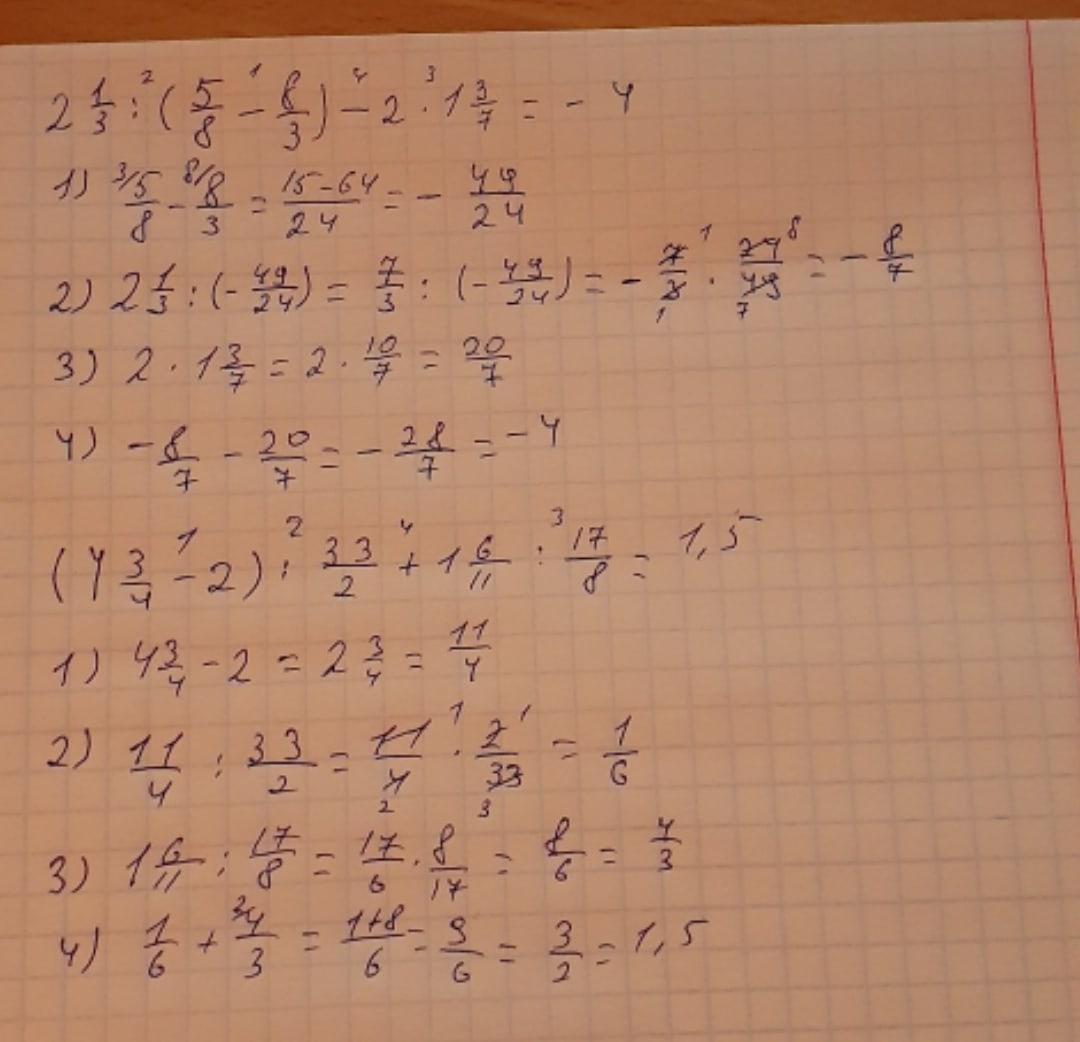 2 1/3 : (5/8 - 8/3) - 2 · 1 3/7 = - 4
1) 5/8 - 8/3 = (15-64)/24 = - 49/24
2) 2 1/3 : (- 49/24) = 7/3 : (- 49/24) = - 7/3 · 24/49 = - 8/7
3) 2 · 1 3/7 = 2 · 10/7 = 20/7
4) - 8/7 - 20/7 = - 28/7 = - 4
(4 3/4 - 2) : 33/2 + 1 6/11 : 17/8 = 1,5
1) 4 3/4 - 2 = 2 3/4 = 11/4
2) 11/4 : 33/2 = 11/4 · 2/33 = 1/6
3) 1 6/11 : 17/8 = 17/6 · 8/17 = 8/6 = 4/3
4) 1/6 + 4/3 = (1+8)/6 = 9/6 = 3/2 = 1,5